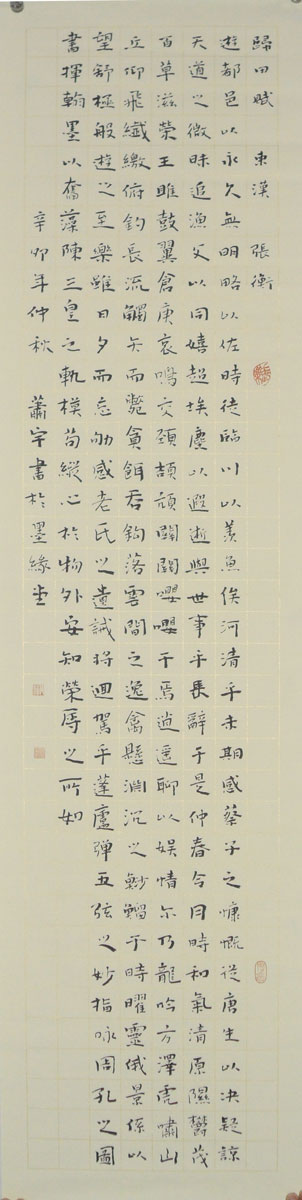 歸田賦 東漢 張衡
遊都邑以永久無明略以佐時徒臨川以羨魚俟河清乎未期感蔡子之慷慨從唐生以決疑諒
天道之微昧追漁父以同嬉超埃塵以遐逝與世事乎長辭于是仲春令月時和氣清原隰鬱茂
百草滋榮王雎鼓翼倉庚哀鳴交頸頡頏關關嚶嚶于焉逍遙聊以娛情尔乃龍吟方澤虎嘯山
丘仰飛纖繳俯釣長流觸矢而斃貪餌吞鉤落雲間之逸禽懸淵沉之魦鰡于時曜靈俄景係以
望舒極般遊之至樂雖日夕而忘劬感老氏之遺誡將迴駕乎蓬廬彈五弦之妙指咏周孔之圖
書揮翰墨以奮藻陳三皇之軌模苟縱心於物外安知榮辱之所如
辛卯年仲秋 蕭宇書於墨緣堂